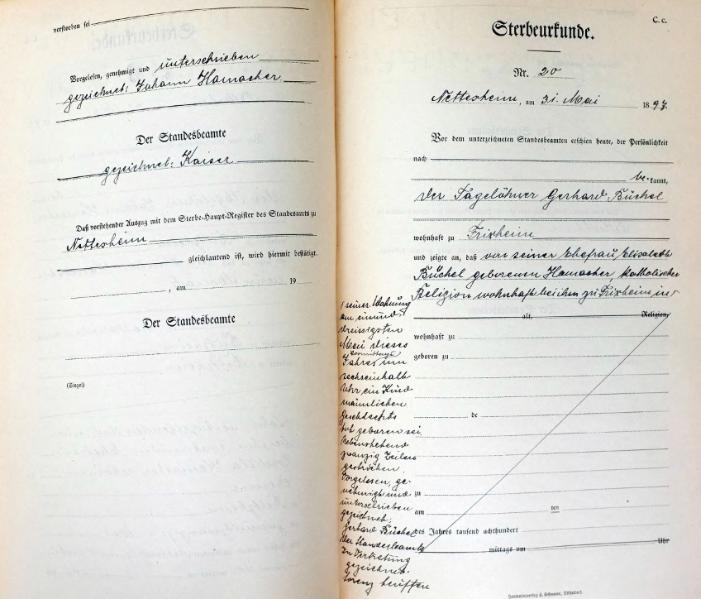 verstorben sei
Vorgelesen, genehmigt und unterschrieben
gezeichnet: Johann Hamacher
Der Standesbeamte
gezeichnet: Kaiser
Daß vorstehender Auszug mit dem Sterbe-Haupt-Register des Standesamts zu
Nettesheim
gleichlautend ist, wird hiermit bestätigt.
, am 19
Der Standesbeamte
(Siegel)
C. c.
Sterbeurkunde.
Nr. 20
Nettesheim, am 31. Mai 1897.
Vor dem unterzeichneten Standesbeamten erschien heute, der Persönlichkeit
nach
be-kannt,
der Tagelöhner Gerhard Büchel
wohnhaft zu Frixheim
und zeigte an, daß von seiner Ehefrau Elisabeth
Büchel geborenen Hamacher, katholischer
Religion wohnhaft bei ihm zu Frixheim in
alt, Religion,
wohnhaft zu
geboren zu
de
zu
am ten
des Jahres tausend achthundert
mittags um Uhr
seiner Wohnung
am einund-
dreissigsten
Mai dieses
Jahres um
sechseinhalb
Uhr ein Kind
männlichen
Geschlechts
tot geboren sei
Nebenstehend
zwanzig Zeilen
gestrichen.
Vorgelesen, ge-
nehmigt und
unterschrieben
gezeichnet:
Gerhard Büchel
Der Standesbeamte
In Vertretung
gezeichnet:
Lorenz